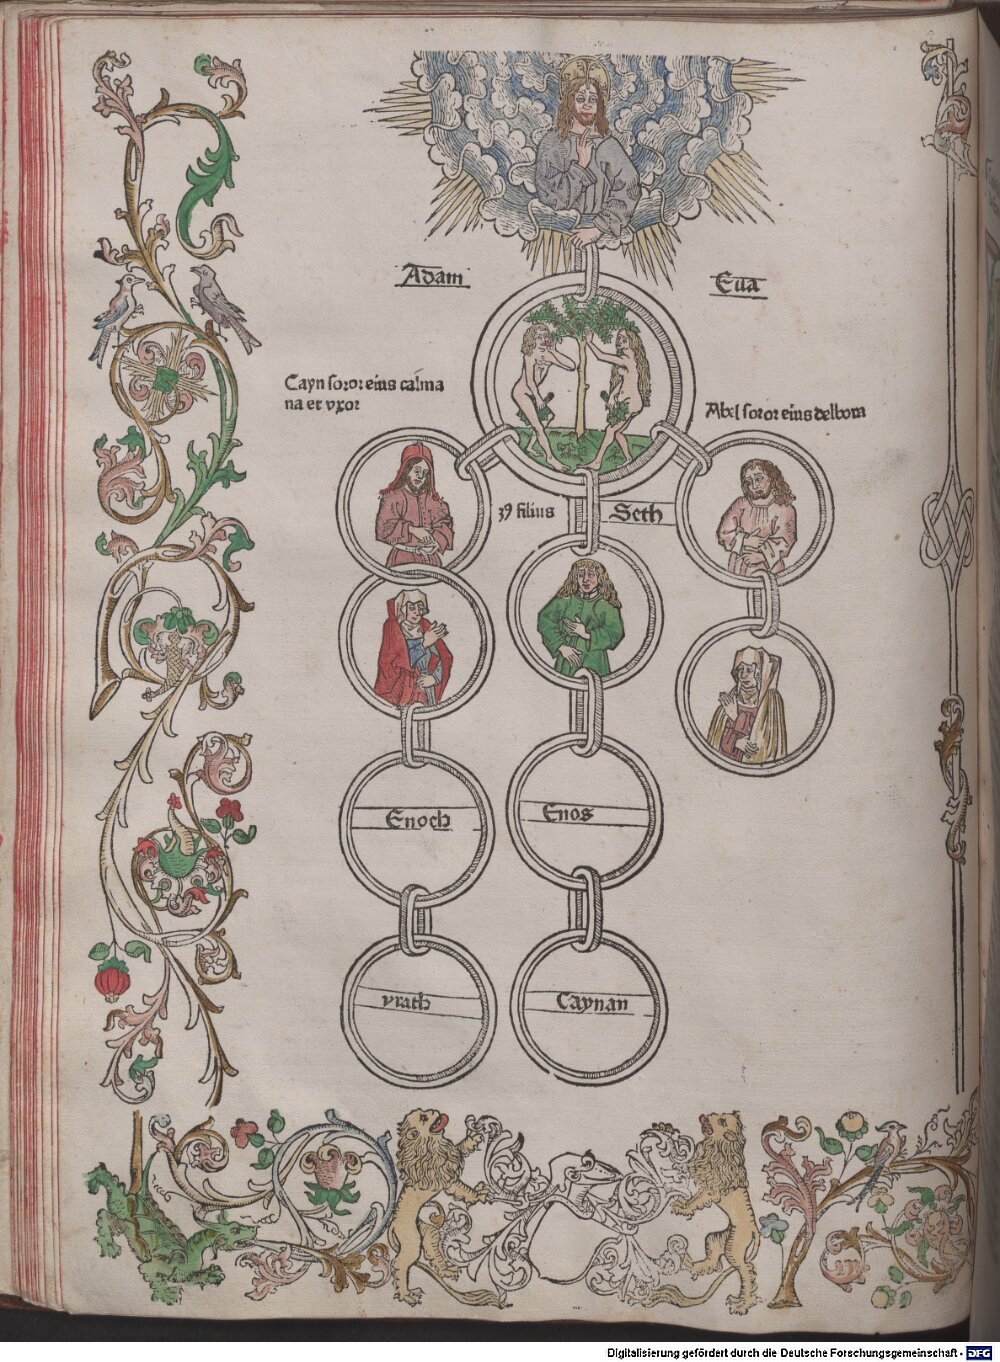 Adam
Eua
Cayn soror eius calma
na et vxor
Abel soror eius delbora
39 filius
Seth
Enoch
Enos
yrath
Caynan
Digitalisierung gefördert durch die Deutsche Forschungsgemeinschaft - DFG